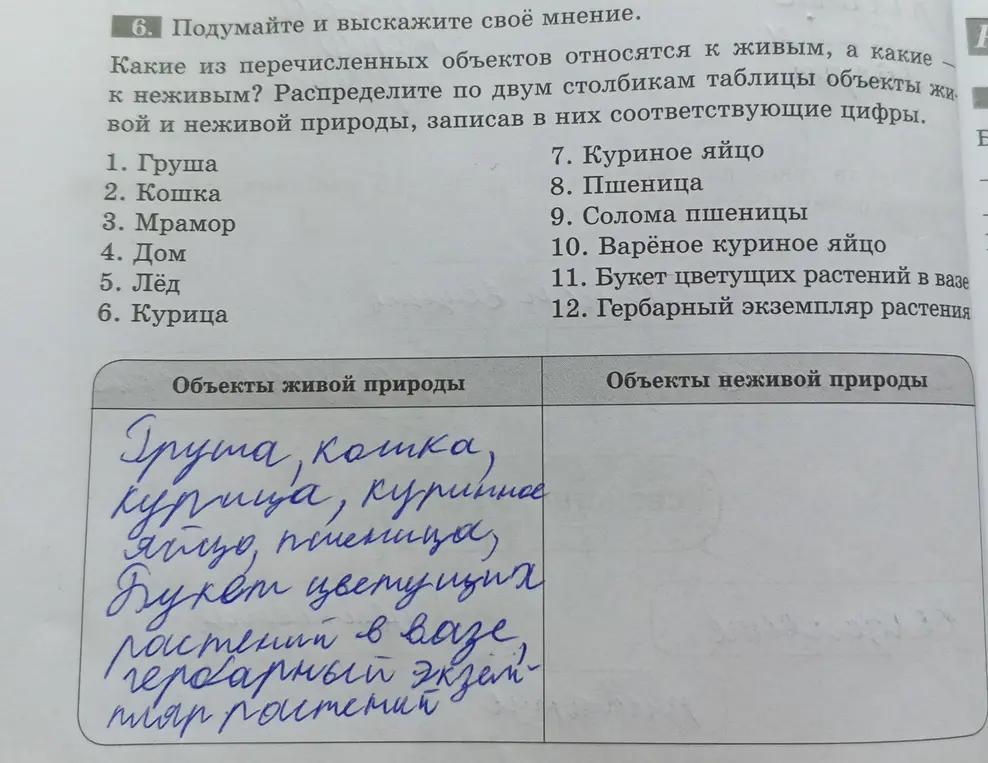 6. Подумайте и выскажите своё мнение.
Какие из перечисленных объектов относятся к живым, а какие –
к неживым? Распределите по двум столбикам таблицы объекты жи-
вой и неживой природы, записав в них соответствующие цифры.
1. Груша
2. Кошка
3. Мрамор
4. Дом
5. Лёд
6. Курица
7. Куриное яйцо
8. Пшеница
9. Солома пшеницы
10. Варёное куриное яйцо
11. Букет цветущих растений в вазе
12. Гербарный экземпляр растения
Объекты живой природы
Объекты неживой природы
Груша, кошка,
курица, куринное
яйцо, пшеница,
Букет цветущих
растений в вазе,
гербарный экзем-
пляр растений